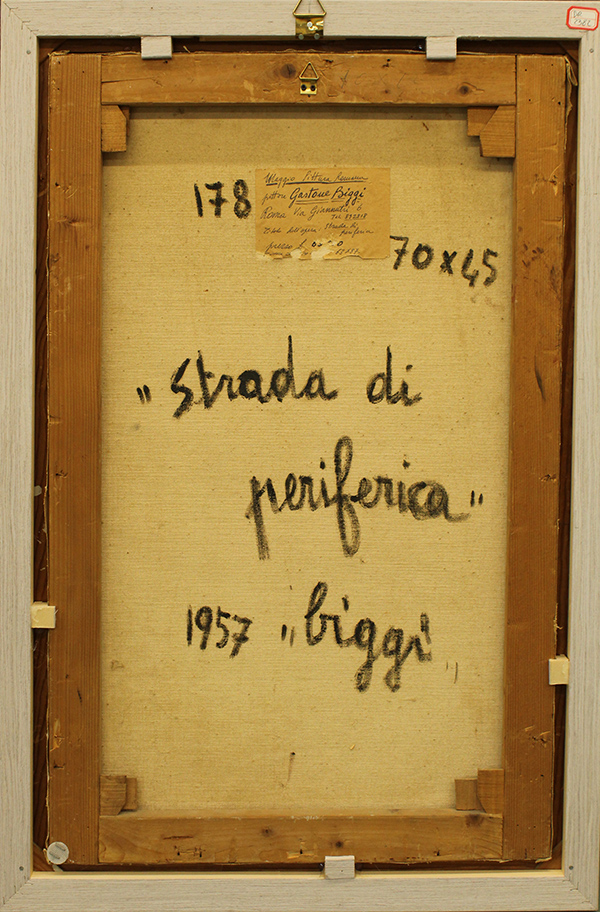 178
Maggio Pittura Romana
pittore Gastone Biggi
Roma Via Giannutri
Tel.
Titolo dell'opera: strada di
periferia
prezzo L.
70 x 45
"strada di
periferica"
1957 "biggi"